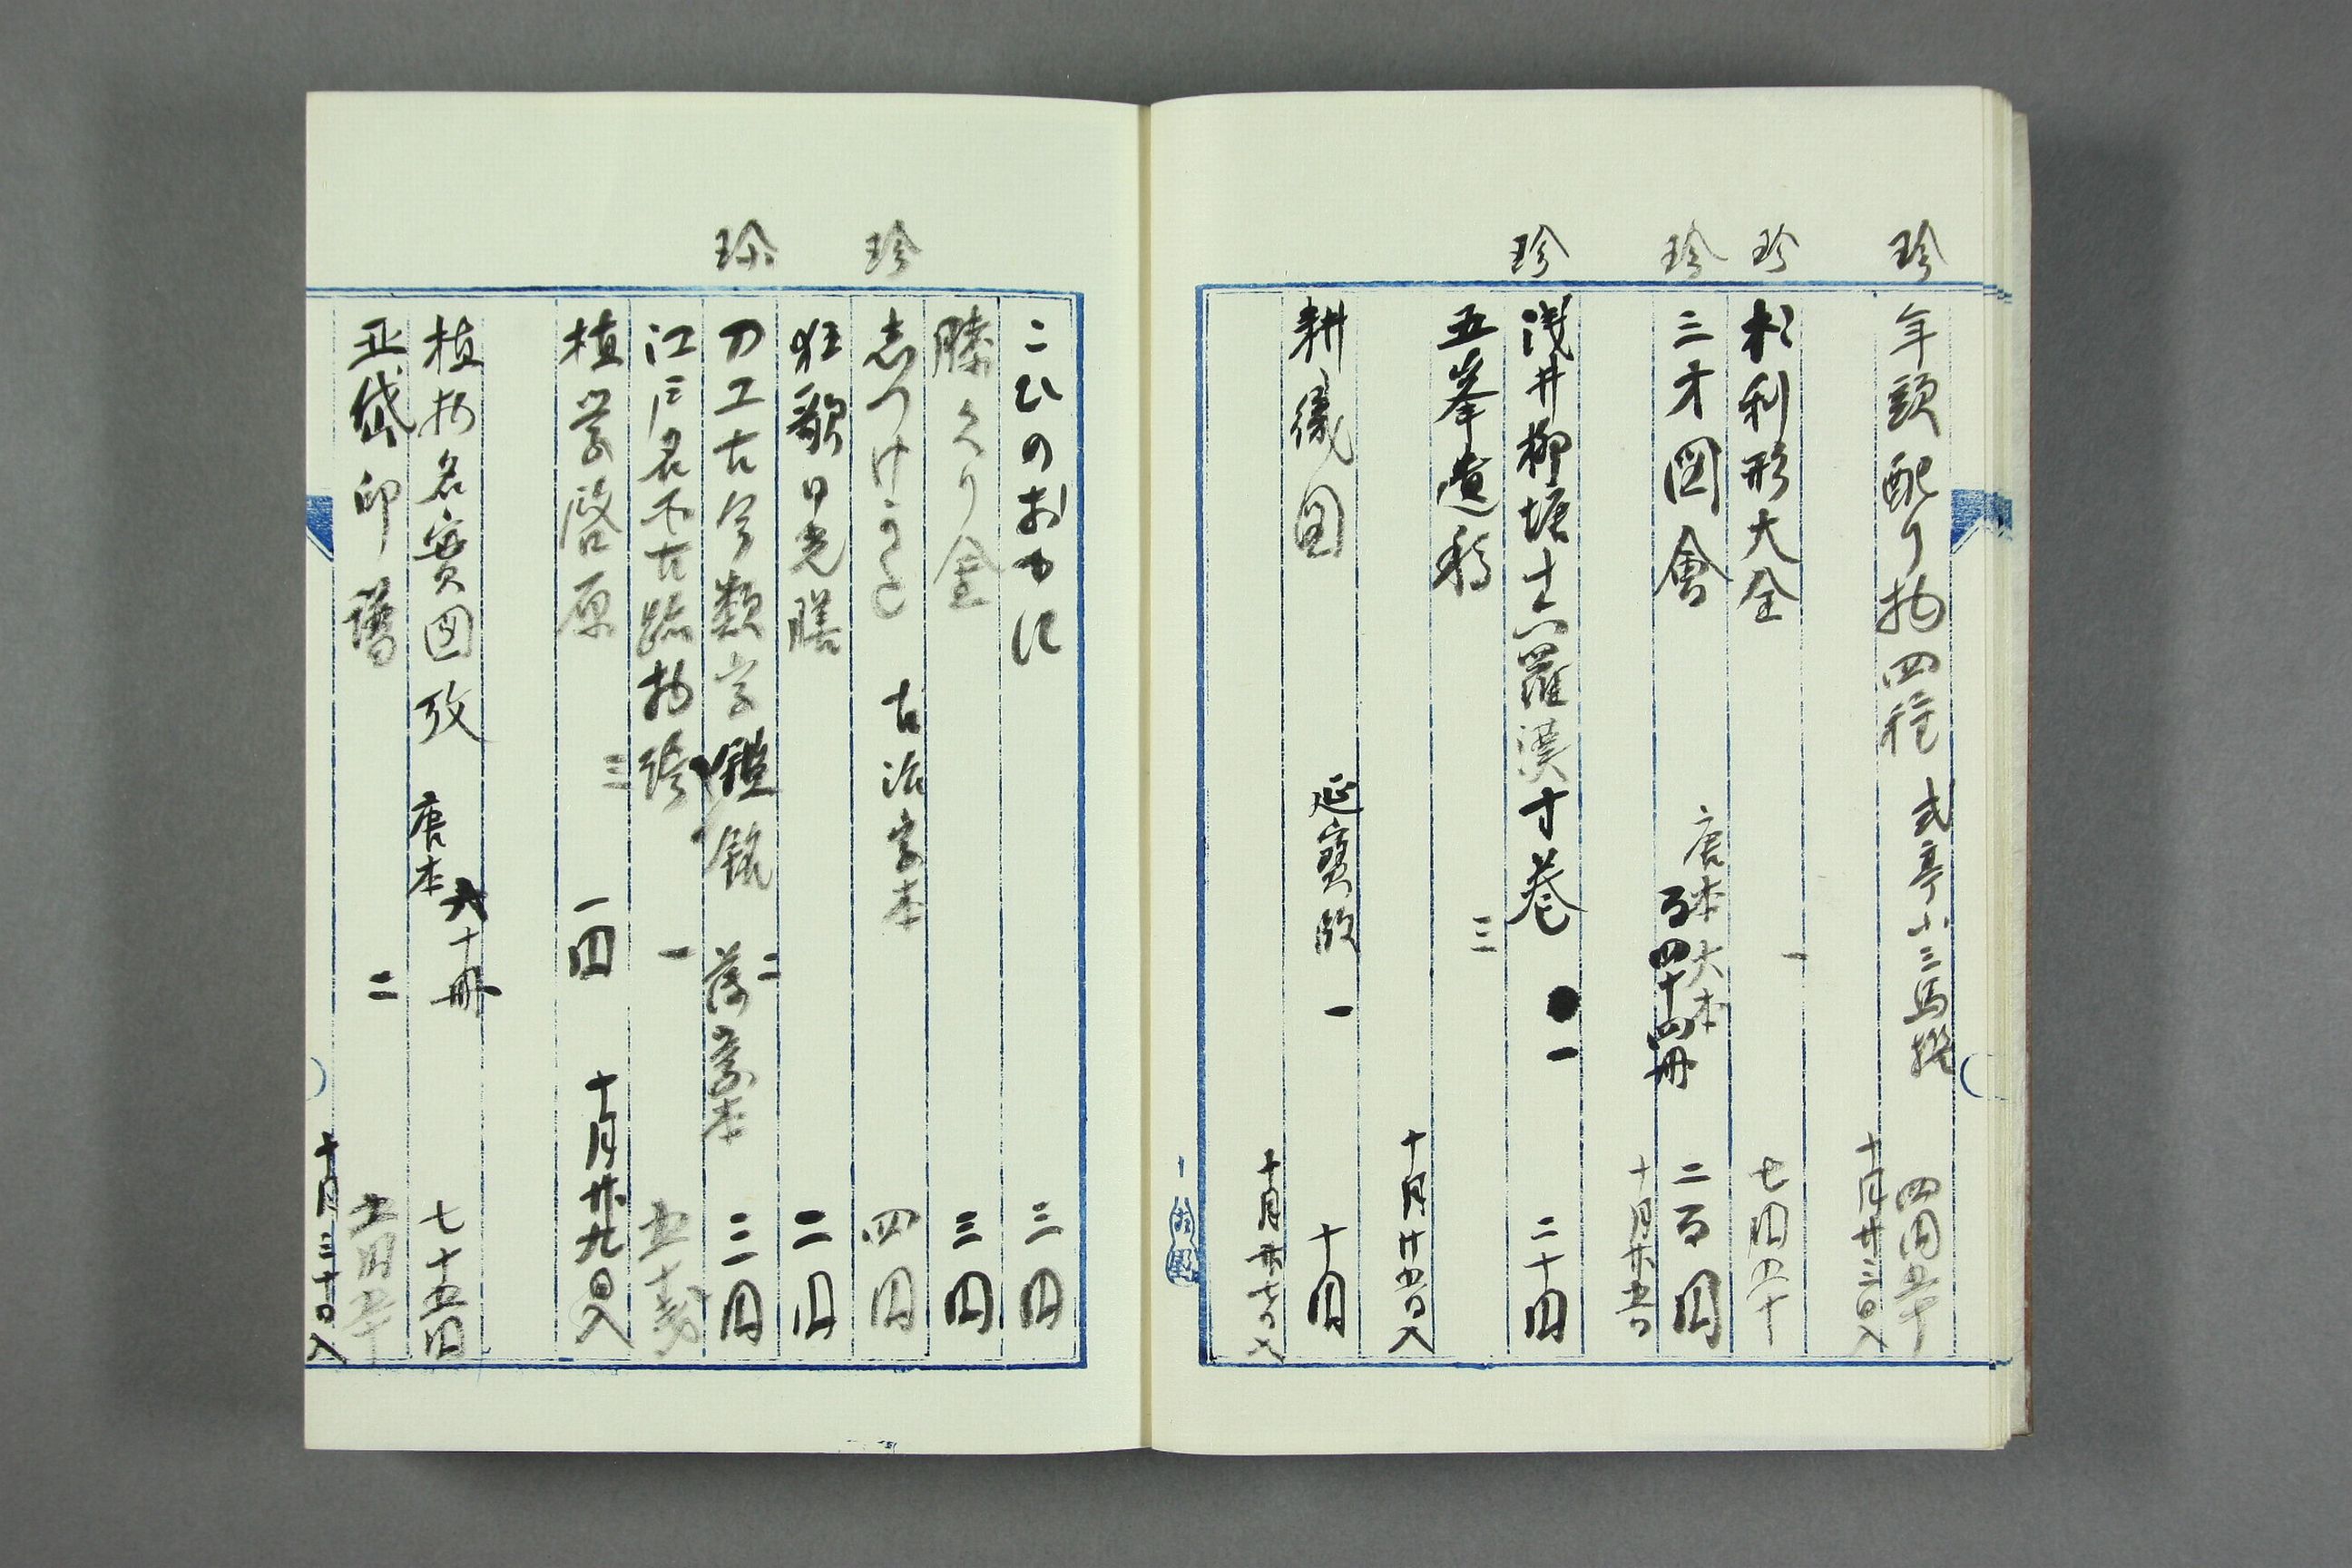 珍 年頭配り物四種 式亭小三馬撰 四円五十
十月廿三日入
珍 杉利形大全 一 七円五十
珍 三才図會 唐本大本 百四十四冊 二百円
十月廿五日
珍 浅井柳塘十六羅漢十巻 一 二十円
五峯遺稿 三
十月廿五日入
耕織図 延寶版 一 十円
十月廿七日入
こひのおもに 三円
膝くり金 三円
珍 志つけうた 古活字本 四円
狂歌日光膳 二円
珍 刀工古今類字鑑銘 二 落葉本 三円
江戸名所古跡物語 一 五十銭
植学啓原 三
一円 十月廿九日入
植物名實図攷 唐本 六十冊 七十五円
亞岱印譜 二 五円五十
十月三十日入